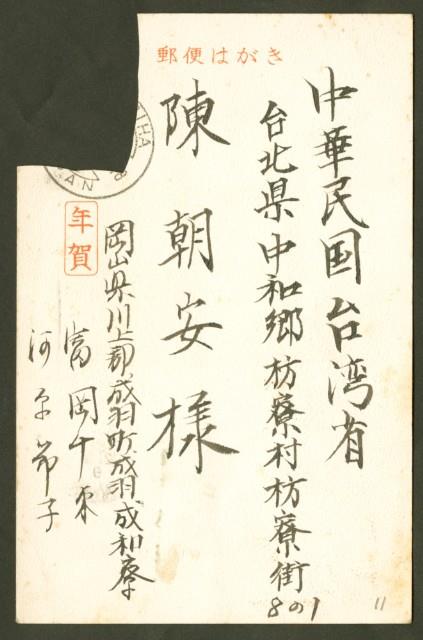 郵便はがき
中華民国台湾省
台北県中和郷枋寮村枋寮街
8の1
陳朝安様
年賀
岡山県川上郡成羽町成羽成和寮
富岡千
河
節子
11